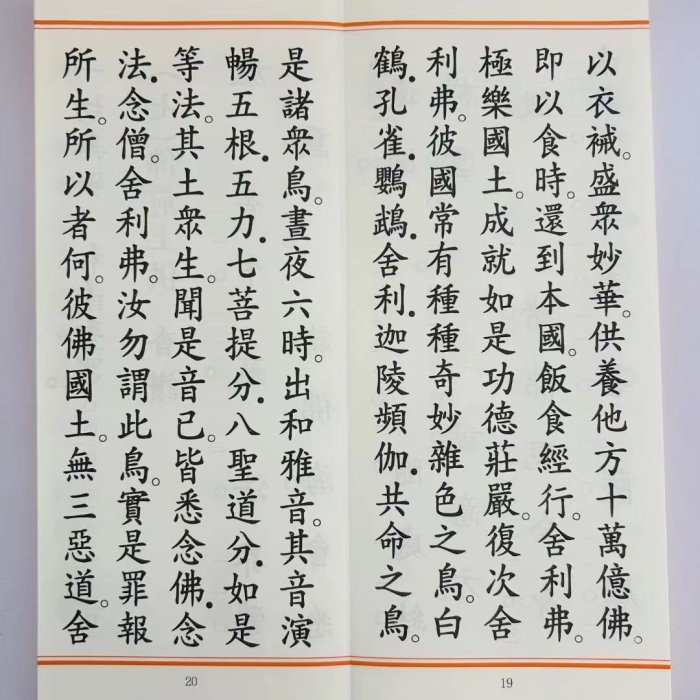 以衣裓。盛眾妙華。供養他方十萬億佛。
即以食時。還到本國。飯食經行。舍利弗。
極樂國土。成就如是功德莊嚴。復次舍
利弗。彼國常有種種奇妙雜色之鳥。白
鶴．孔雀．鸚鵡．舍利．迦陵頻伽．共命之鳥。
19
是諸眾鳥。晝夜六時。出和雅音。其音演
暢五根．五力．七菩提分．八聖道分．如是
等法。其土眾生。聞是音已。皆悉念佛．念
法．念僧。舍利弗。汝勿謂此鳥。實是罪報
所生。所以者何。彼佛國土。無三惡道。舍
20